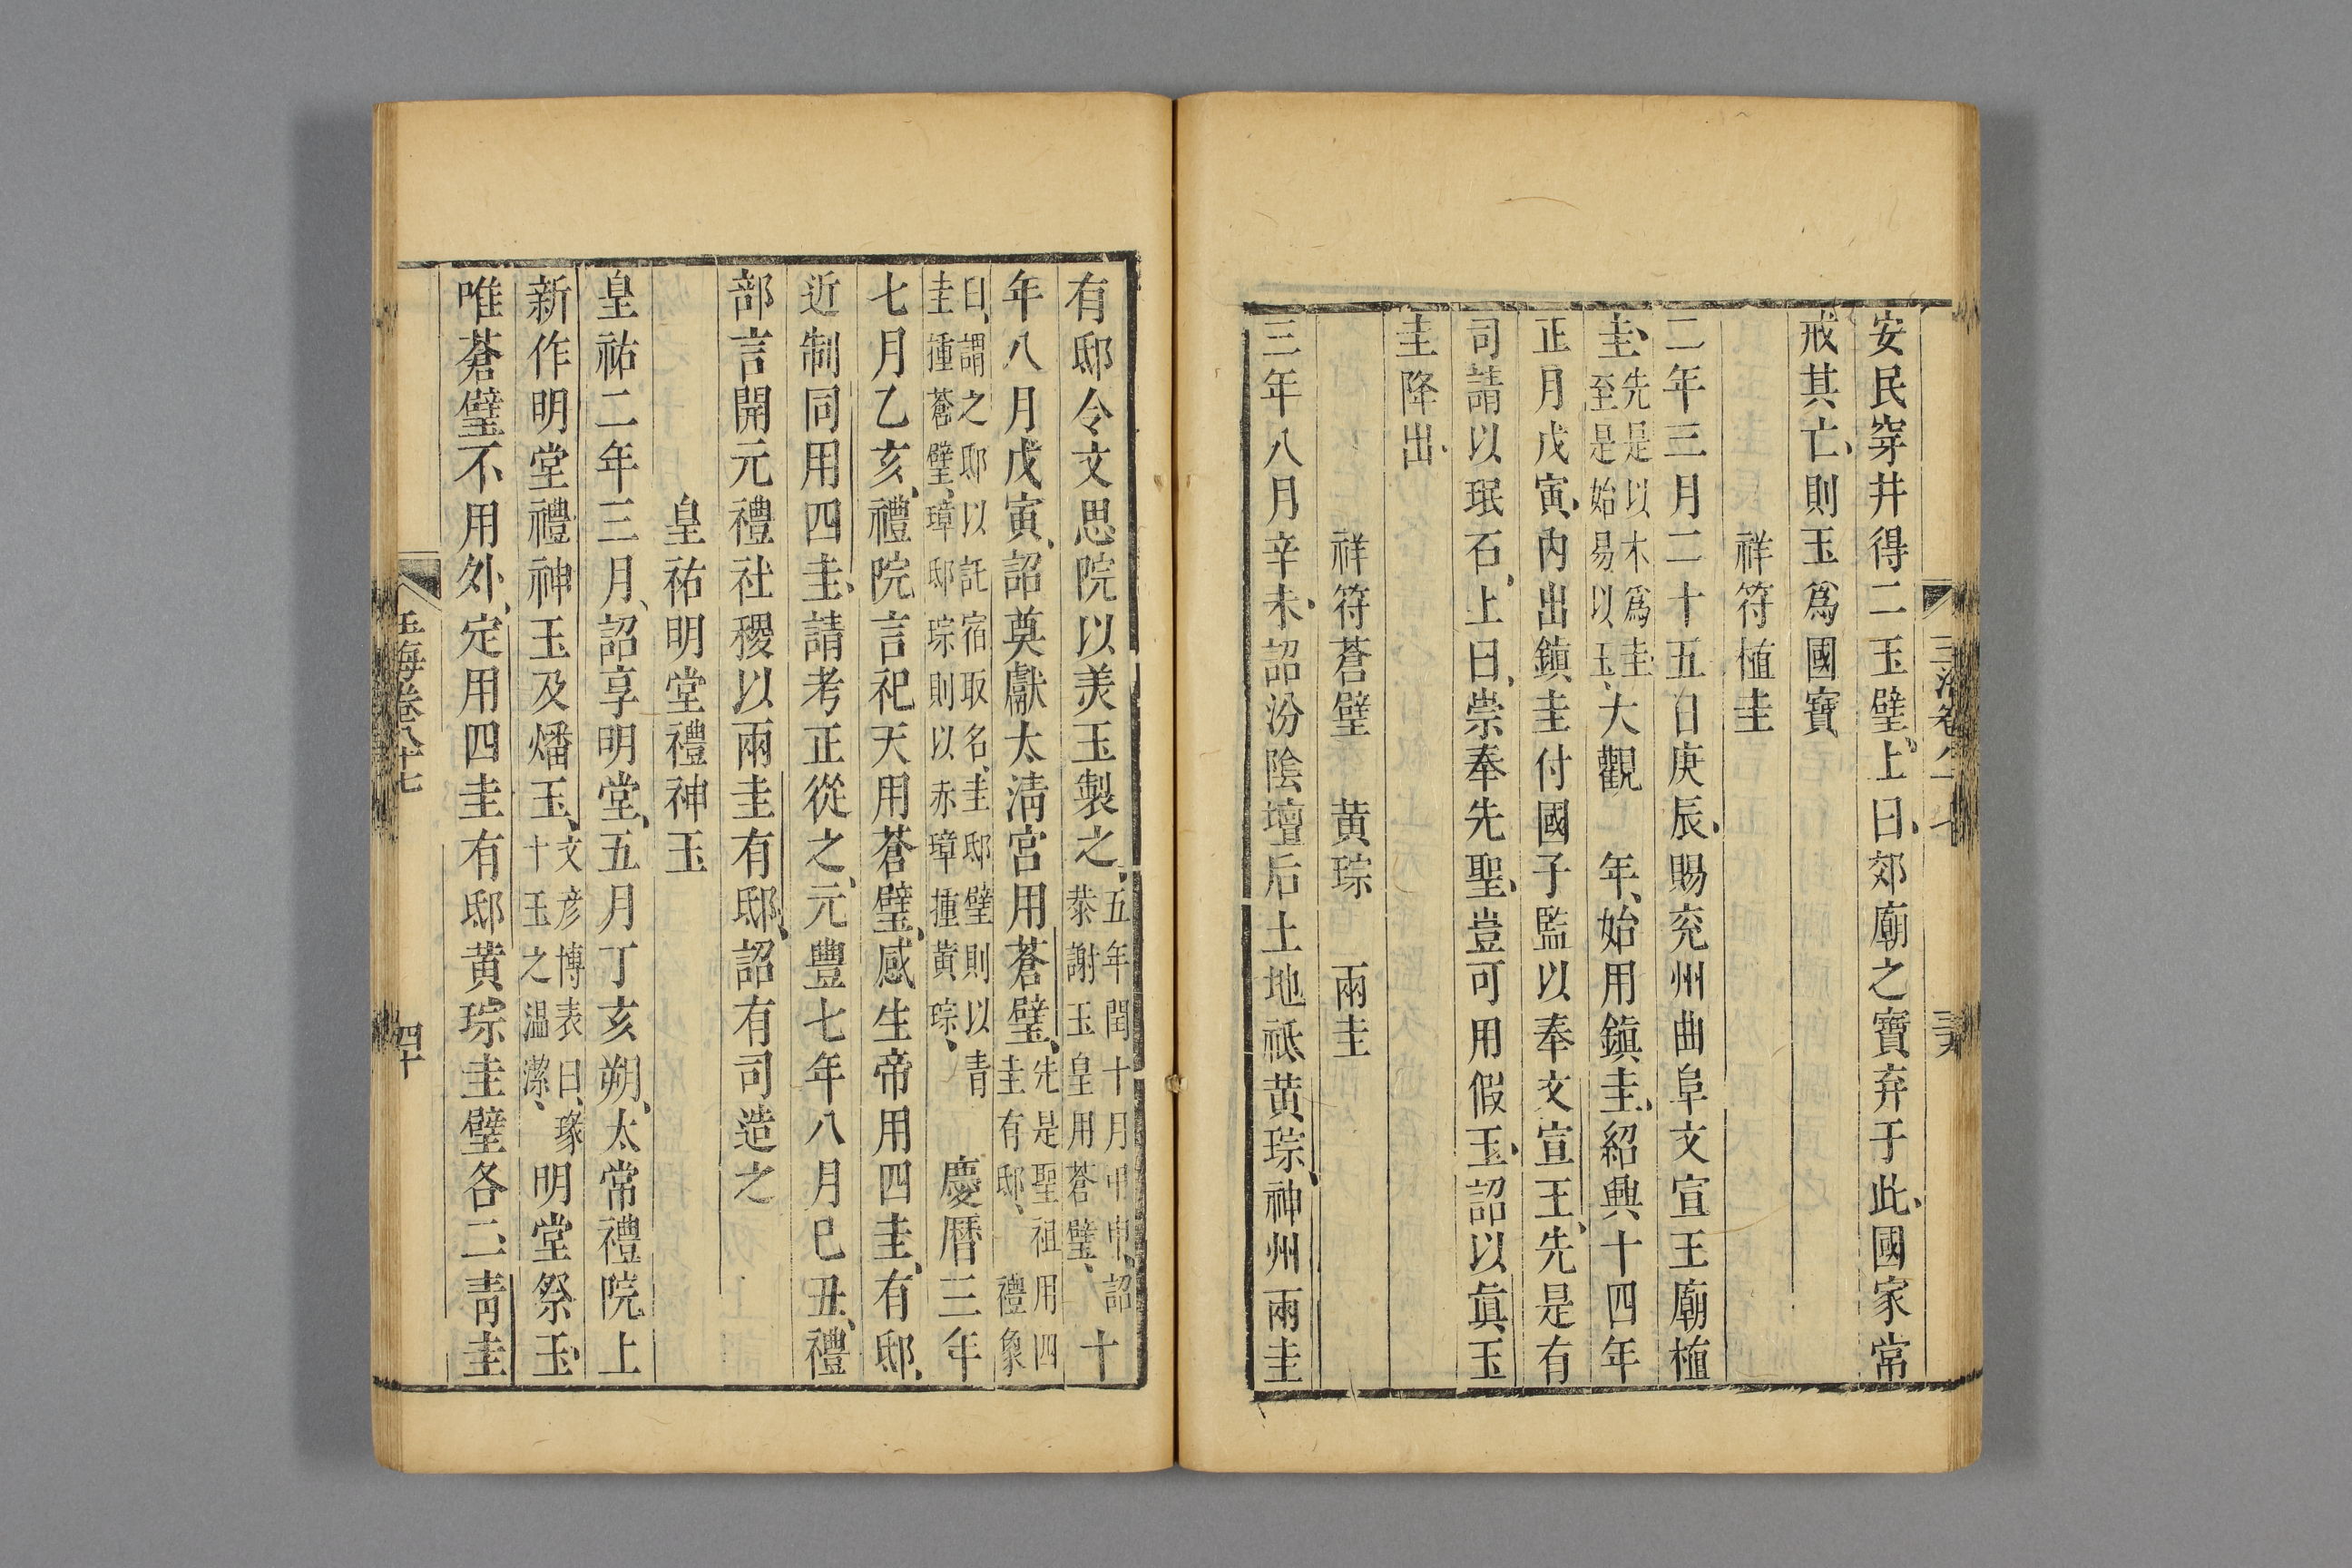 安民穿井得二玉璧上曰郊廟之寶弃于此國家常
戒其亡則玉爲國寶
祥符植圭
二年三月二十五日庚辰賜兖州曲阜文宣王廟植
圭先是以木爲圭至是始易以玉大觀二年始用鎮圭紹興十四年
正月戊寅内出鎮圭付國子監以奉文宣王先是有
司請以珉石上曰崇奉先聖豈可用假玉詔以眞玉
圭降出
祥符蒼璧 黄琮 兩圭
三年八月辛未詔汾陰壇后土地祇黄琮神州兩圭
有邸令文思院以美玉製之五年閏十月甲申詔恭謝玉皇用蒼璧十
年八月戊寅詔奠獻太清宮用蒼璧先是聖祖用四圭有邸禮象
曰謂之邸以託宿取名圭邸璧則以青圭揰蒼璧璋邸琮則以赤璋揰黄琮慶曆三年
七月乙亥禮院言祀天用蒼璧感生帝用四圭有邸
近制同用四圭請考正從之元豐七年八月巳丑禮
部言開元禮社稷以兩圭有邸詔有司造之
皇祐明堂禮神玉
皇祐二年三月詔享明堂五月丁亥朔太常禮院上
新作明堂禮神玉及燔玉文彦博表曰瑑十玉之温潔明堂祭玉
唯蒼璧不用外定用四圭有邸黄琮圭璧各二青圭
玉海卷八十七
四十